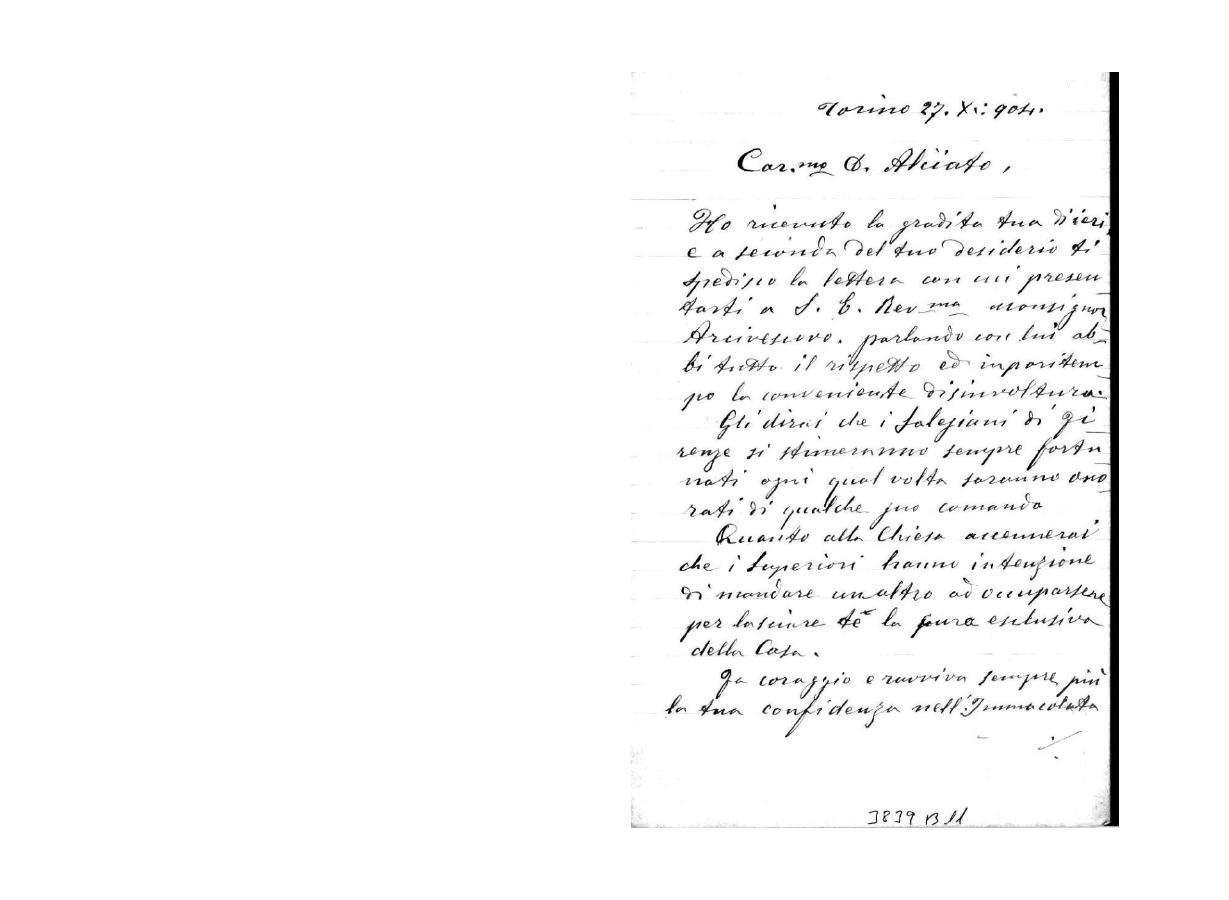 Torino 27. XI: 904.
Car.mo D. Alciato,
Ho ricevuto la gradita tua di ieri,
e a seconda del tuo desiderio ti
spedisco la lettera con cui presen
tarti a S. E. Rev.ma Monsignor
Arcivescovo. parlando con lui ab-
bi tutto il rispetto ed in pari tem
po la conveniente disinvoltura.
Gli dirai che i Salesiani di Fi
renze si stimeranno sempre fortu
nati ogni qual volta saranno ono
rati di qualche suo comando
Quanto alla Chiesa accennerai
che i Superiori hanno intenzione
di mandare un altro ad occuparsene
per lasciare te la cura esclusiva
della Casa.
Fa coraggio e ravviva sempre più
la tua confidenza nell'Immacolata
./.
3839 B 11